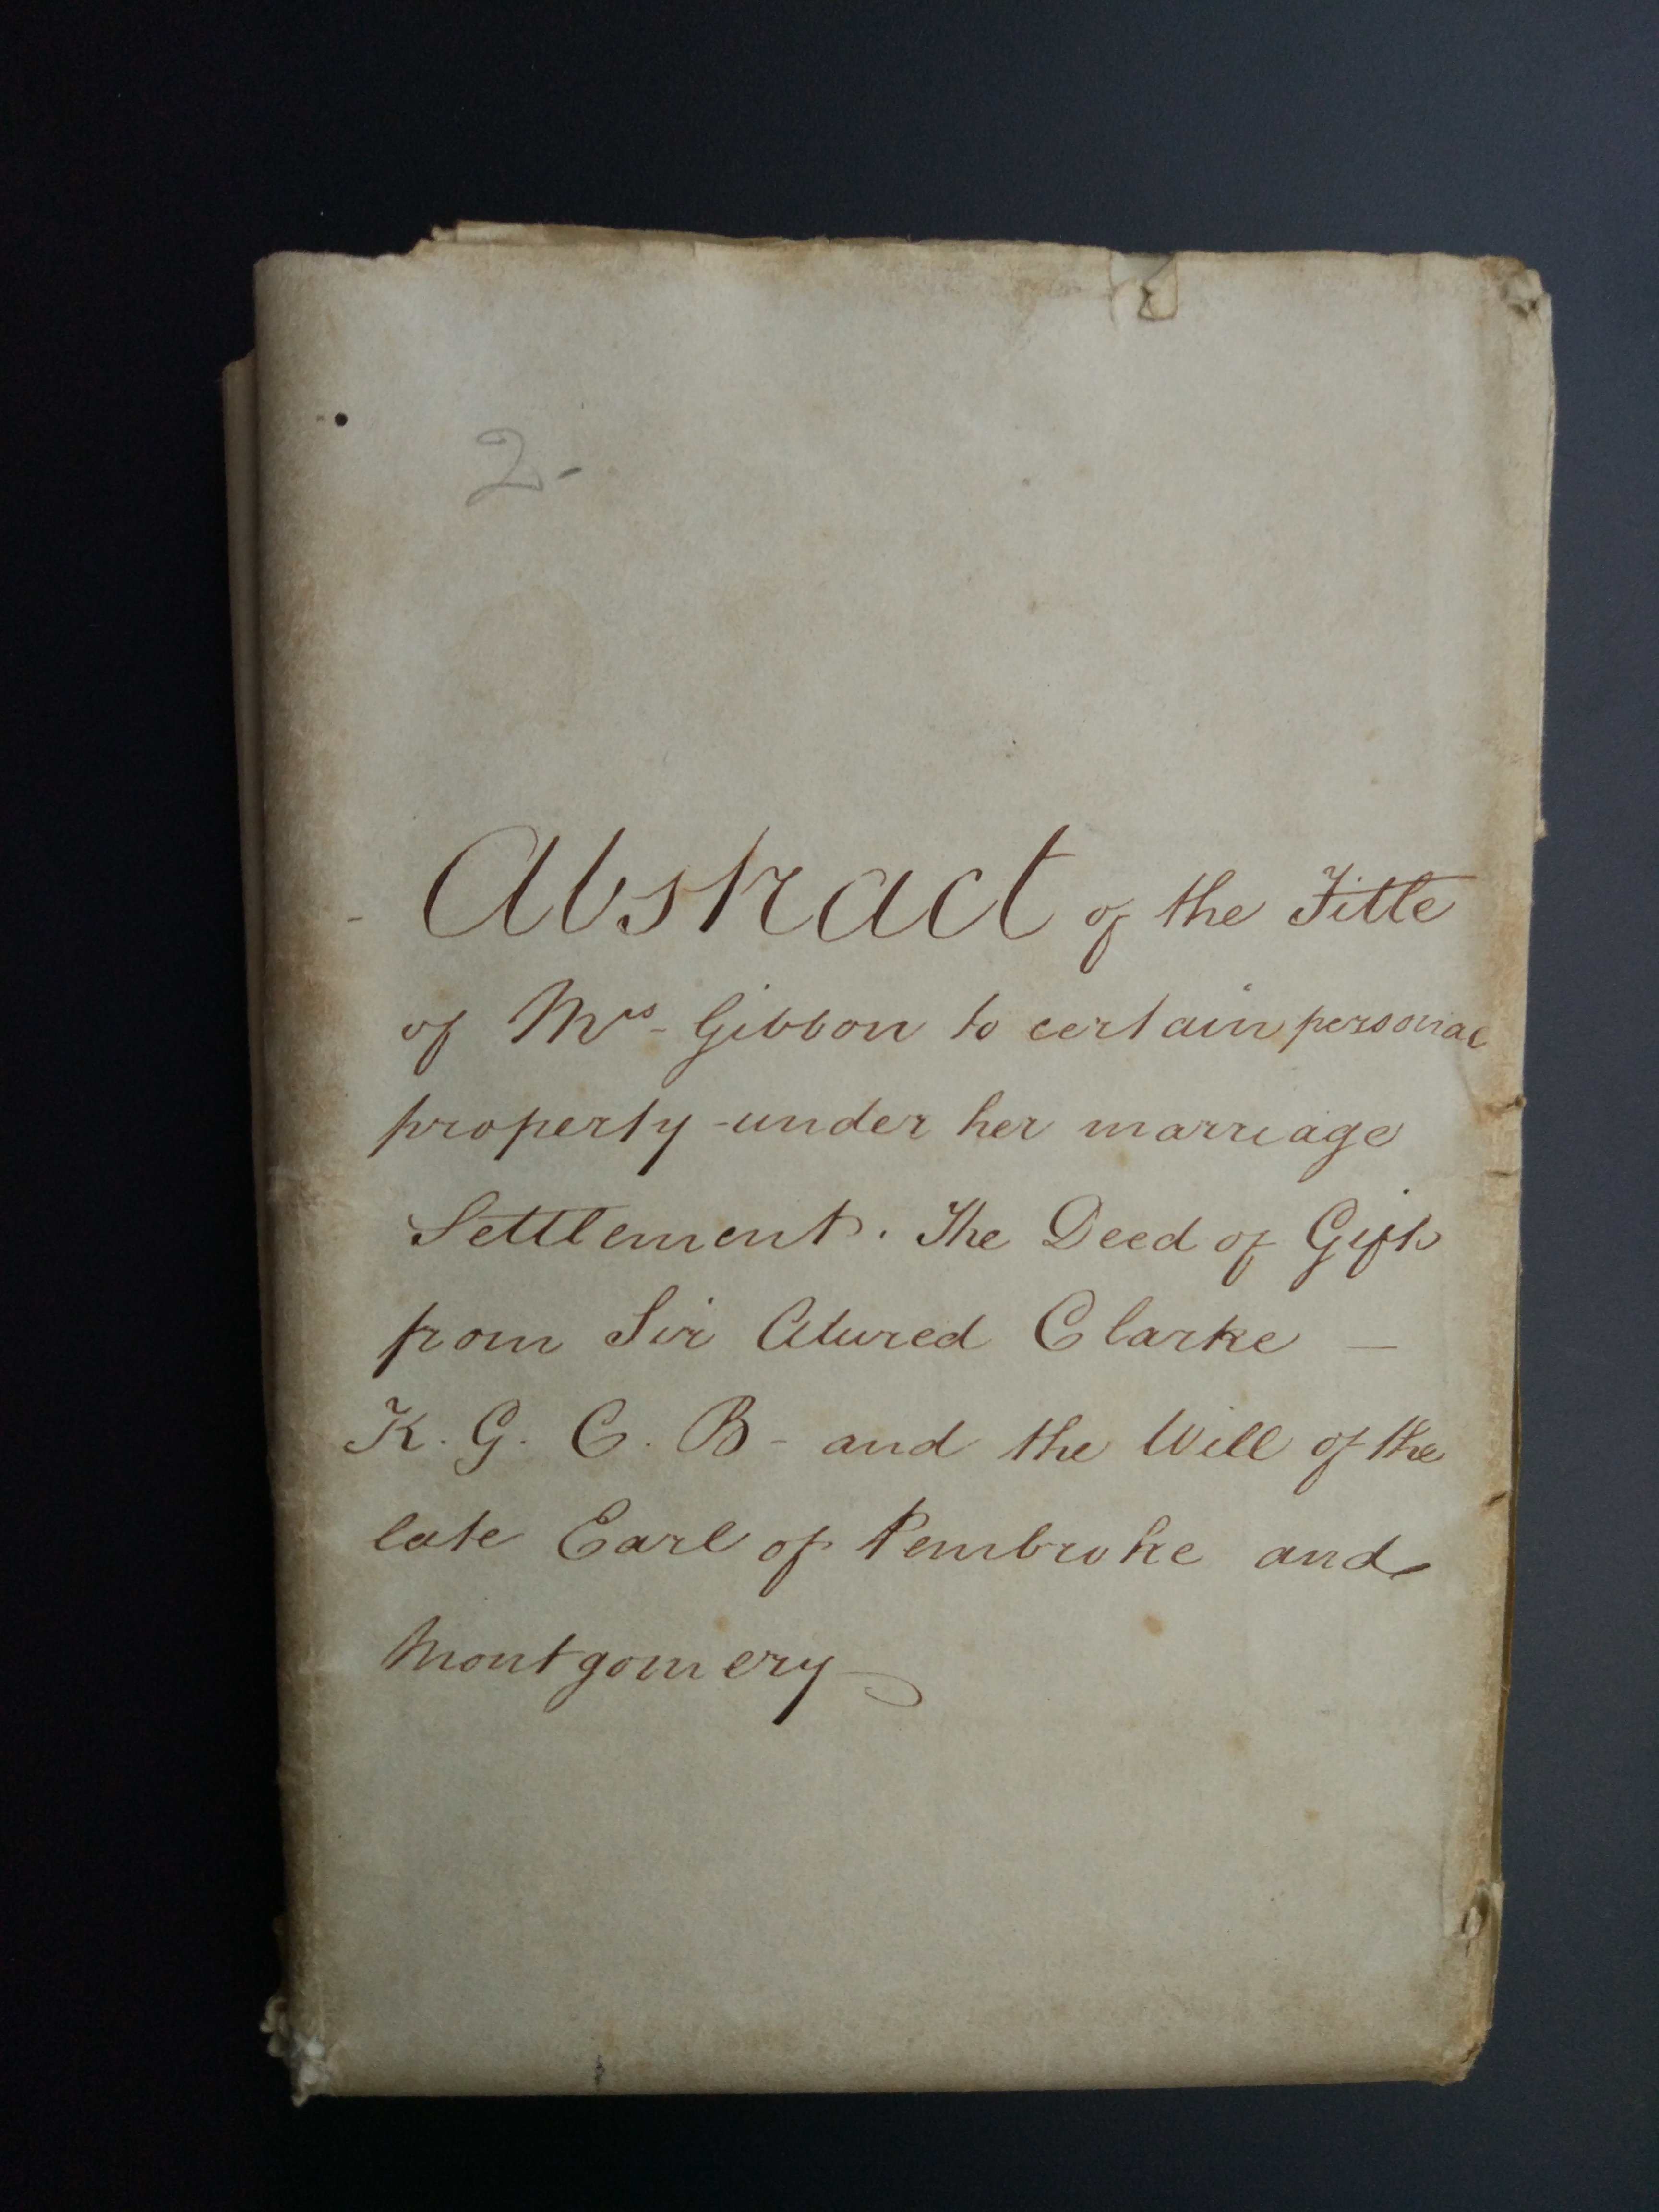 2-
Abstract of the Title
of Mrs Gibbon to certain personal
property under her marriage
Settlement. The Deed of Gift
from Sir Alured Clarke —
K. G. C. B - and the Will of the
late Earl of Pembroke and
Montgomery